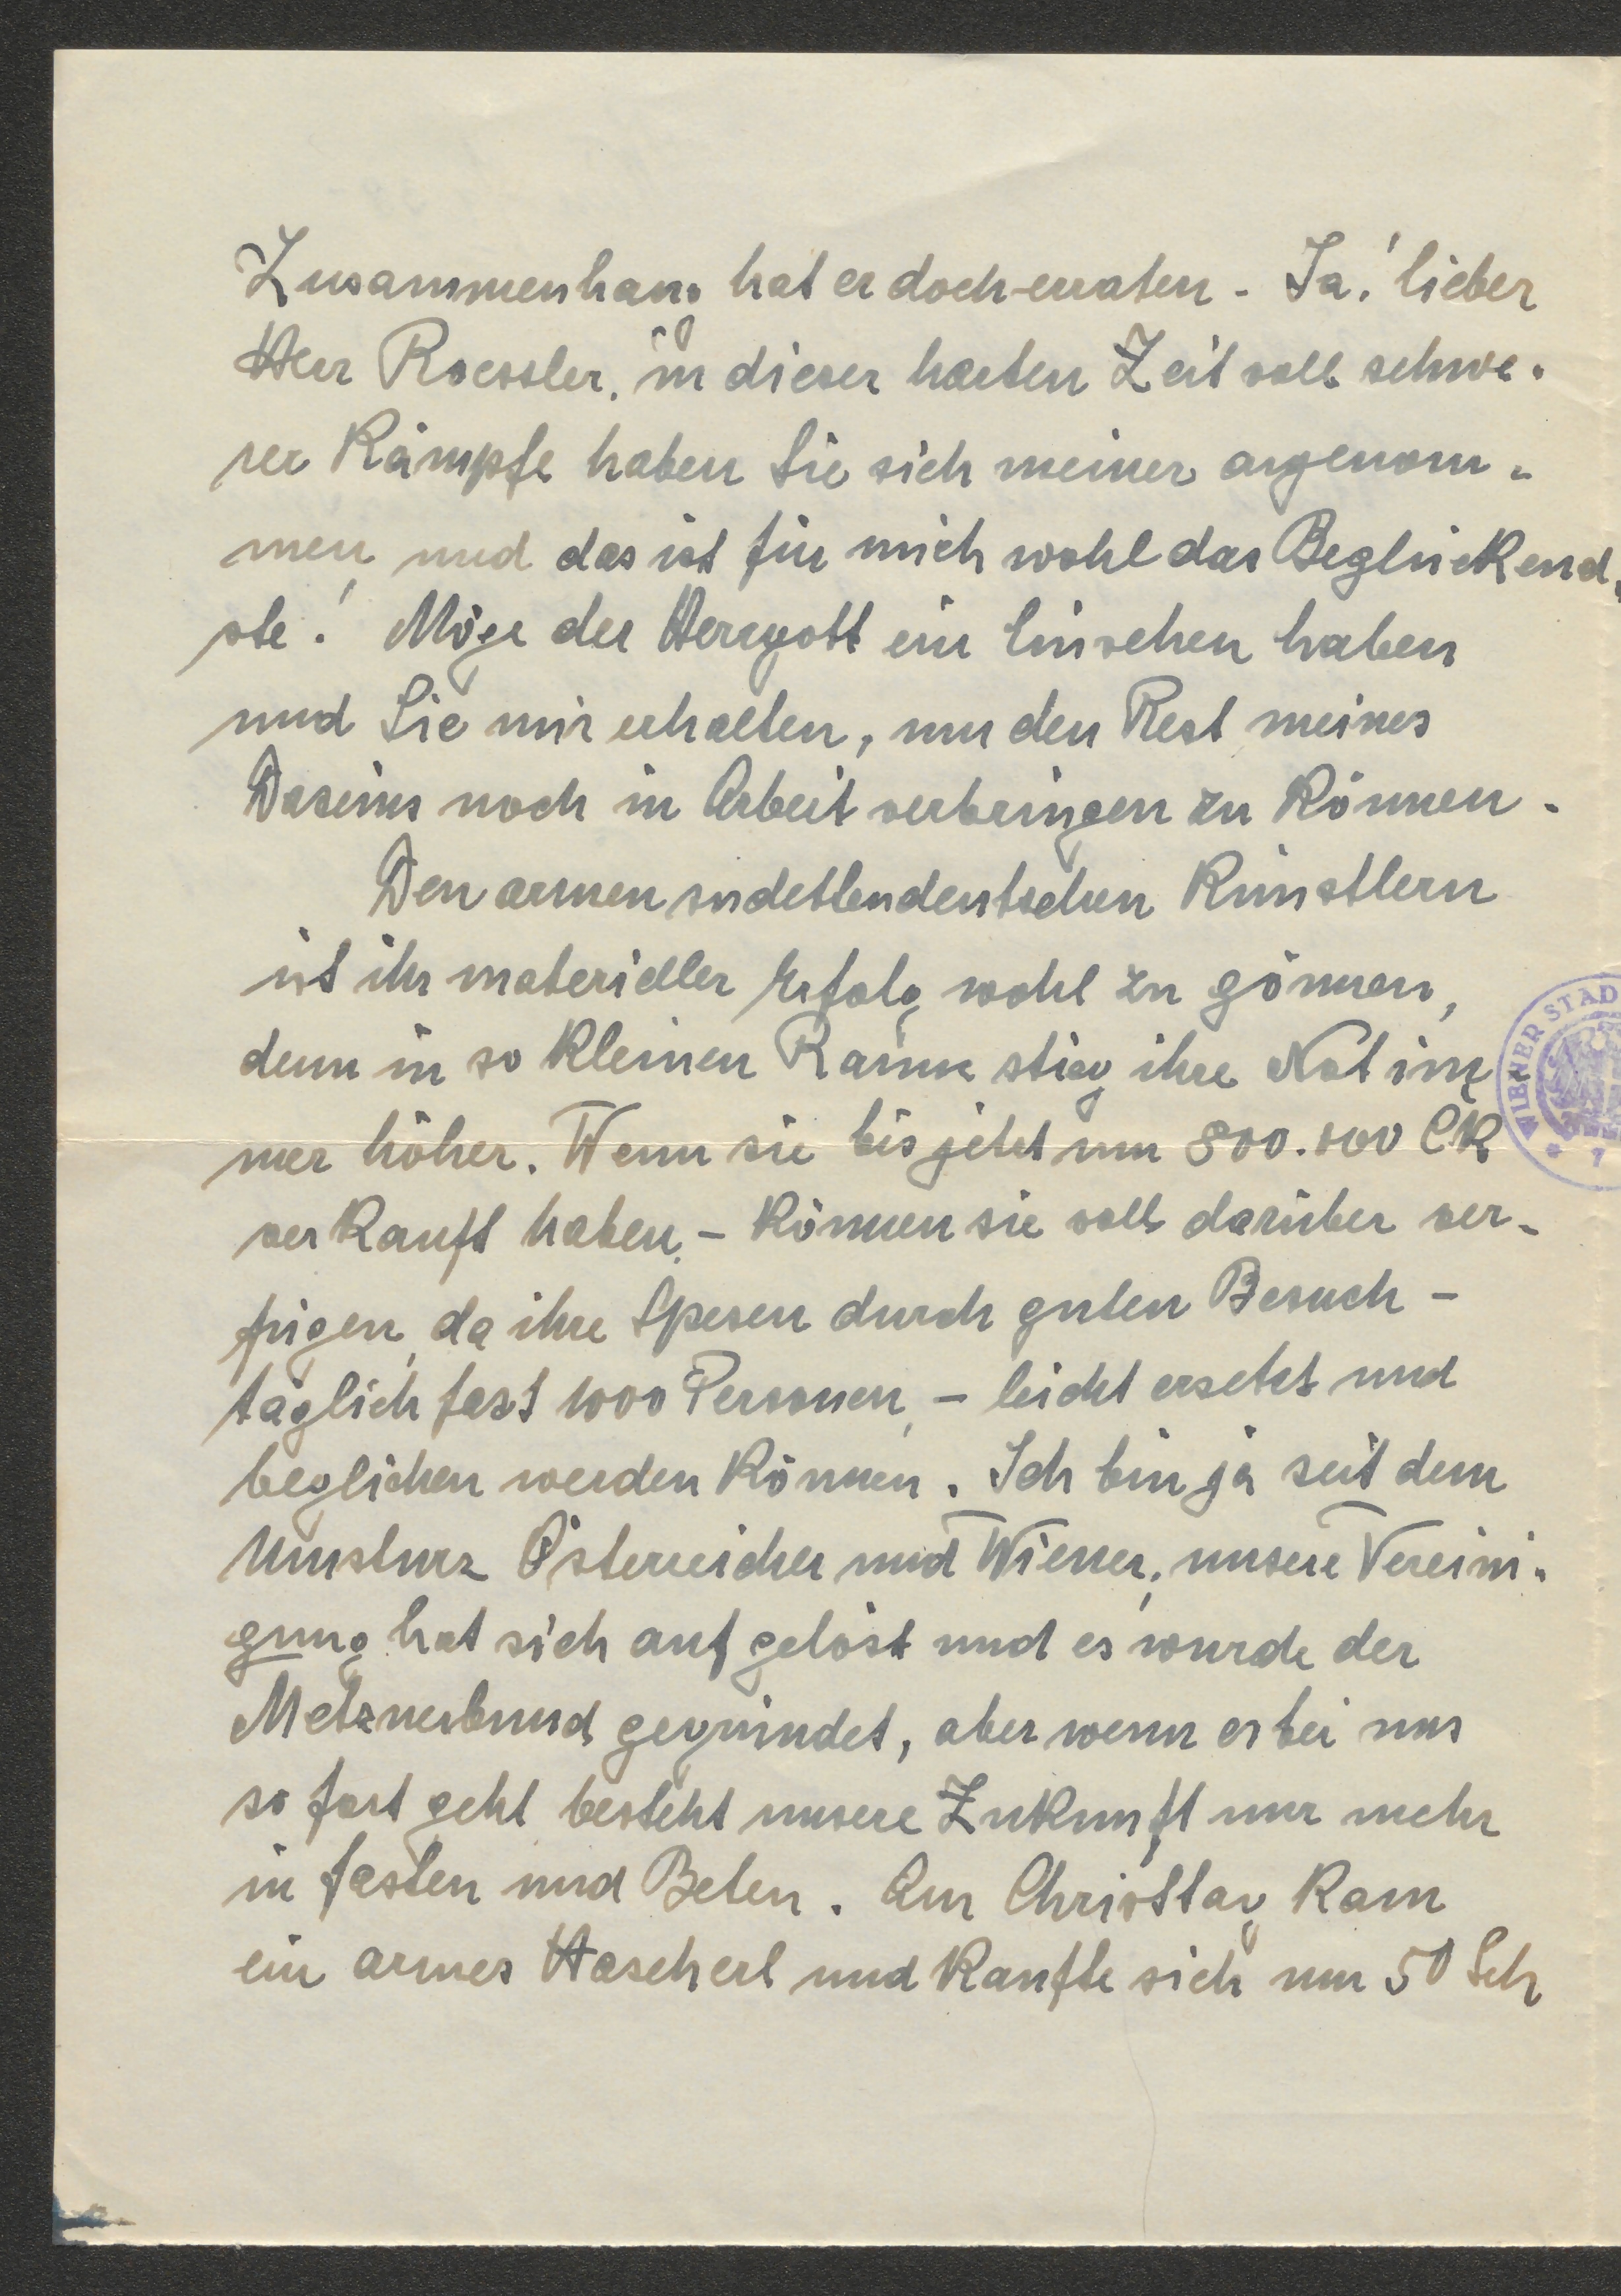 Zusammenhang hat er doch erraten. Ja! lieber
Herr Roessler, in dieser harten Zeit voll schwe-
rer Kämpfe haben Sie sich meiner angenom-
men, und das ist für mich wohl das Beglückend-
ste! Möge der Herrgott ein Einsehen haben
und Sie mir erhalten, um den Rest meines
Daseins noch in Arbeit verbringen zu können.
Den armen sudettendeutschen Künstlern
ist ihr materieller Erfolg wohl zu gönnen,
denn in so kleinen Raume stieg ihre Not im-
mer höher. Wenn sie bis jetzt um 800.000 CK
verkauft haben, - können sie voll darüber ver-
fügen, da ihre Spesen durch guten Besuch -
täglich fast 1000 Personen, - leicht ersetzt und
beglichen werden können. Ich bin ja seit dem
Umsturz Österreicher und Wiener, unsere Vereini-
gung hat sich aufgelöst und es wurde der
Metznerbund gegründet, aber wenn es bei uns
so fort geht besteht unsere Zukunft nur mehr
in fasten und Beten. Am Christtag kam
ein armes Hascherl und kaufte sich um 50 Sch
WIENER STAD